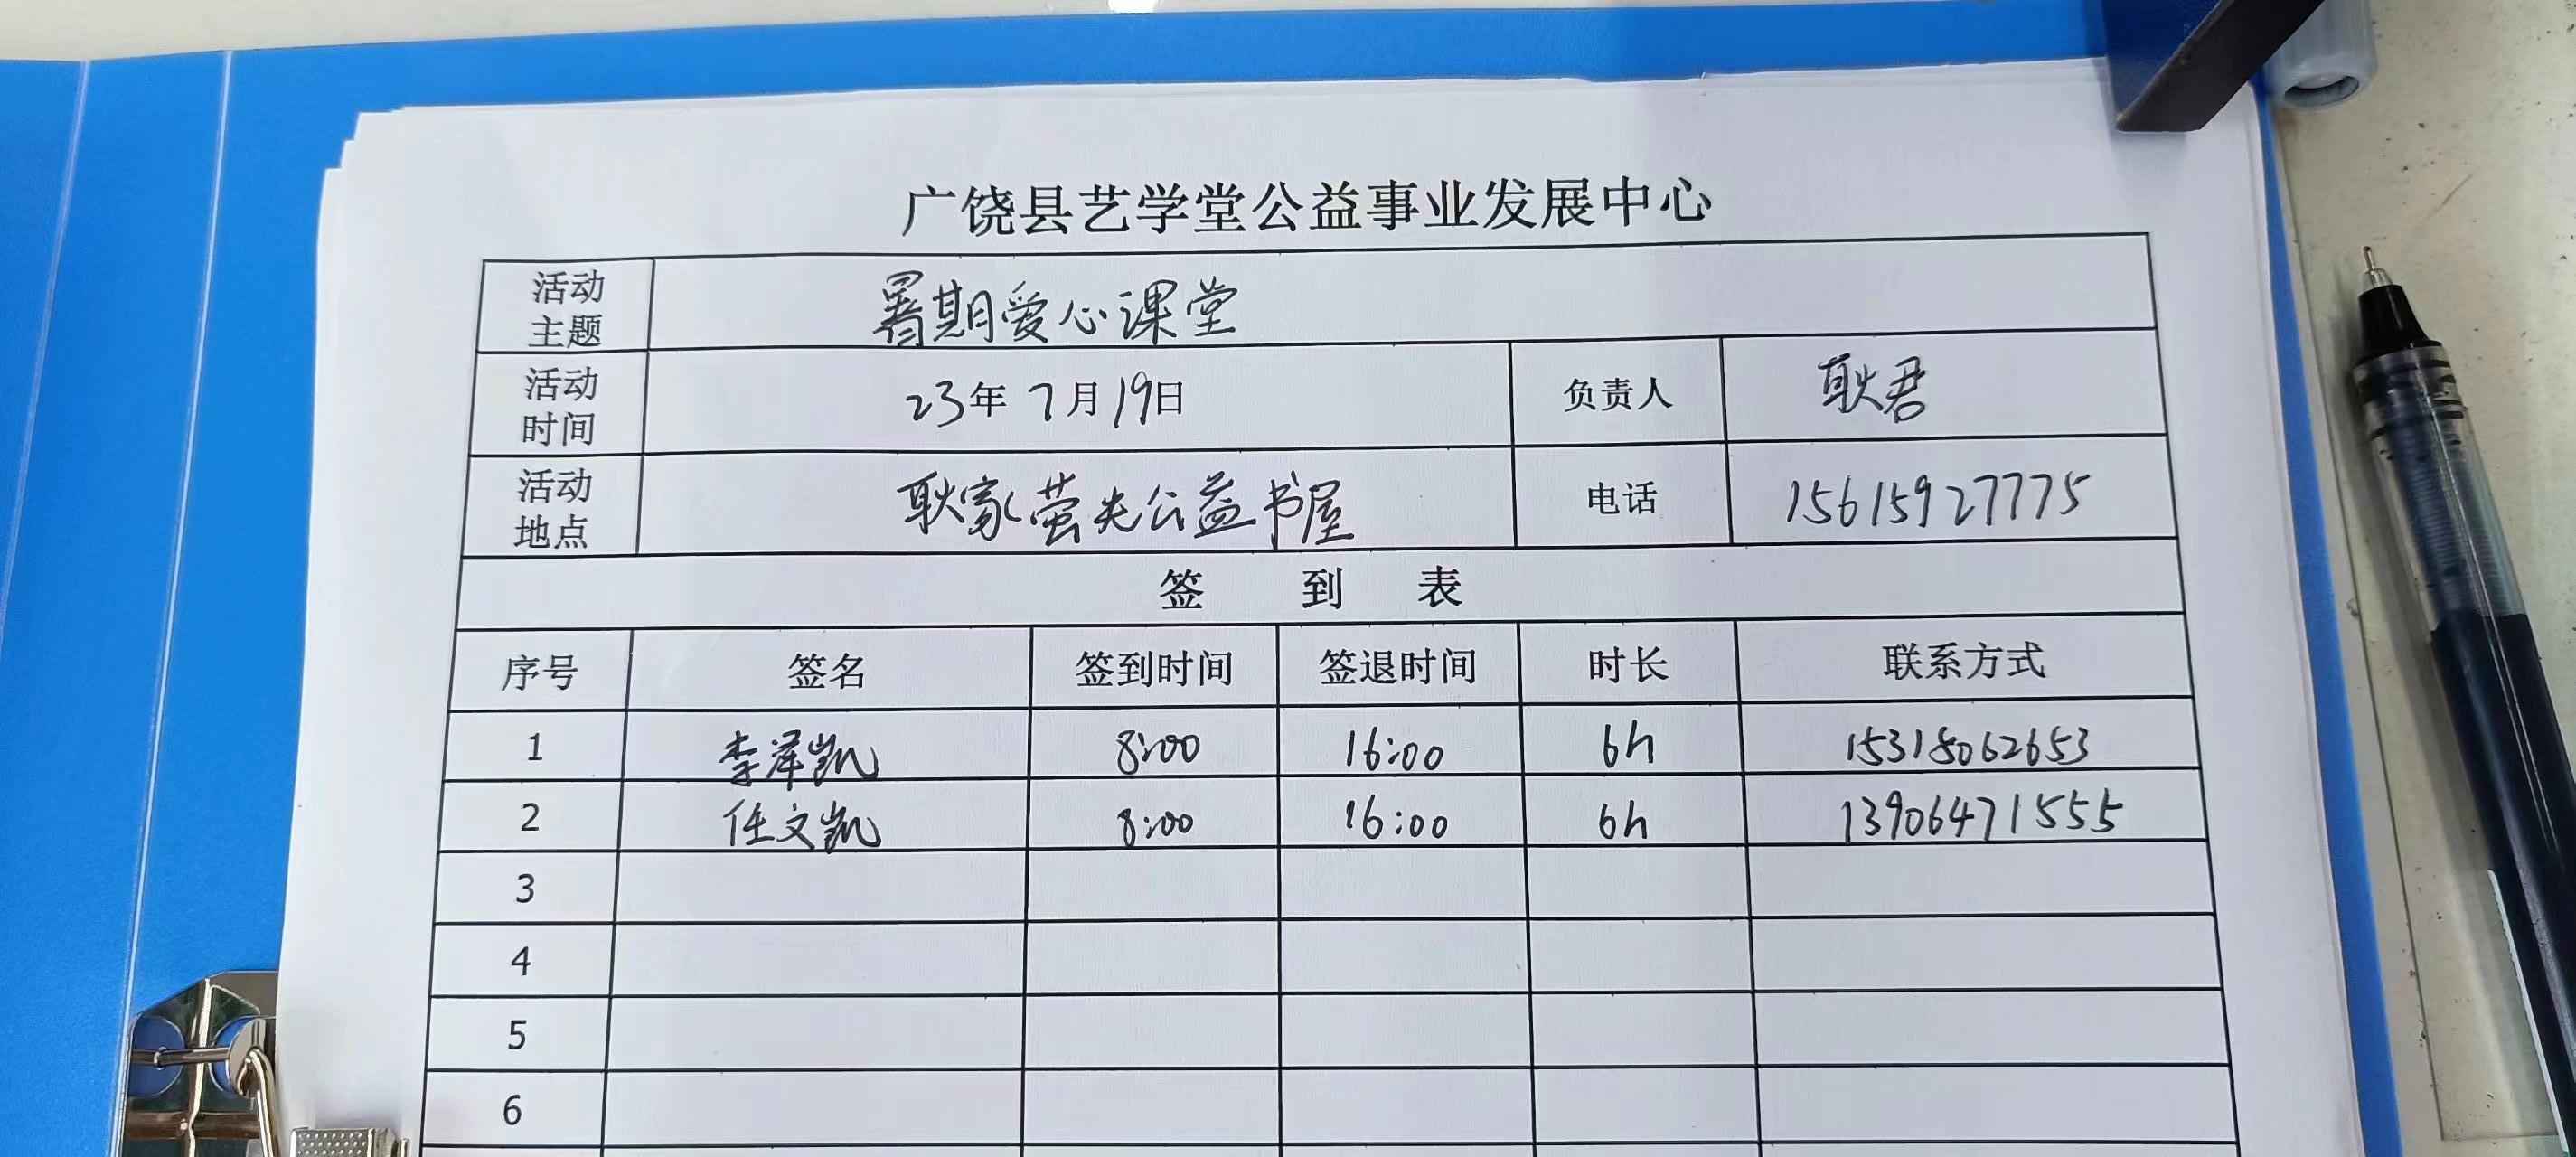 广饶县艺学堂公益事业发展中心
活动主题 暑期爱心课堂
活动时间 23年7月19日 负责人 耿君
活动地点 耿家萤光公益书屋 电话 15615927775
签 到 表
序号 签名 签到时间 签退时间 时长 联系方式
1 李泽凯 8:00 16:00 6h 15315062653
2 任文凯 8:00 16:00 6h 13906471555
3
4
5
6